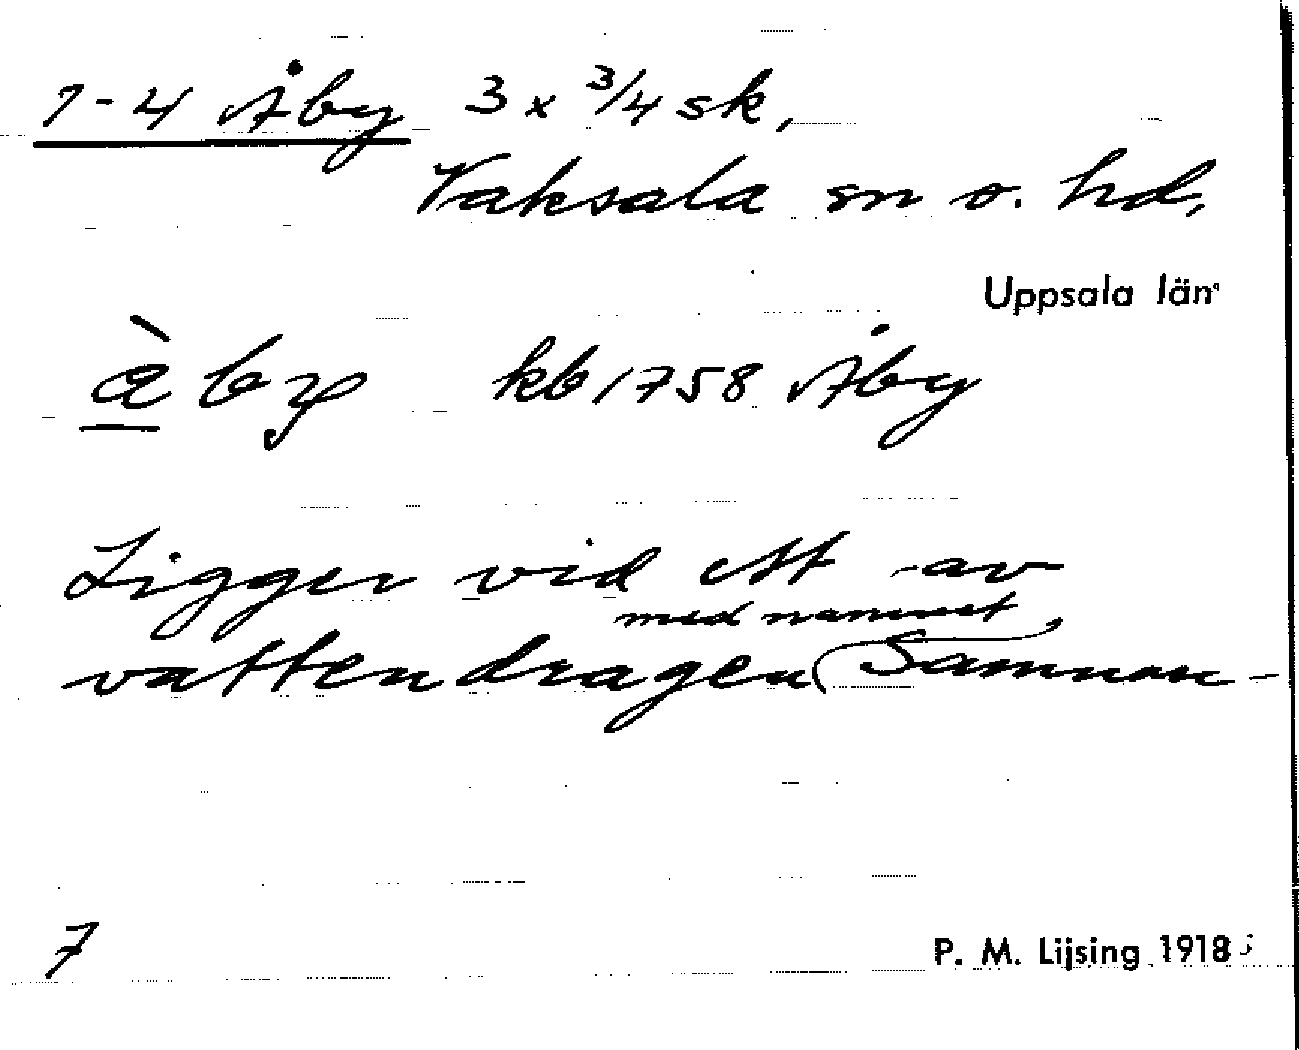 1-4 Åby 3 x 3/4 sk,
Vaksala sn o. hd,
Uppsala län
à by kb 1758 Åby
Ligger vid ett av
med namnet
vattendragen (Samnan-
7
P. M. Lijsing 1918